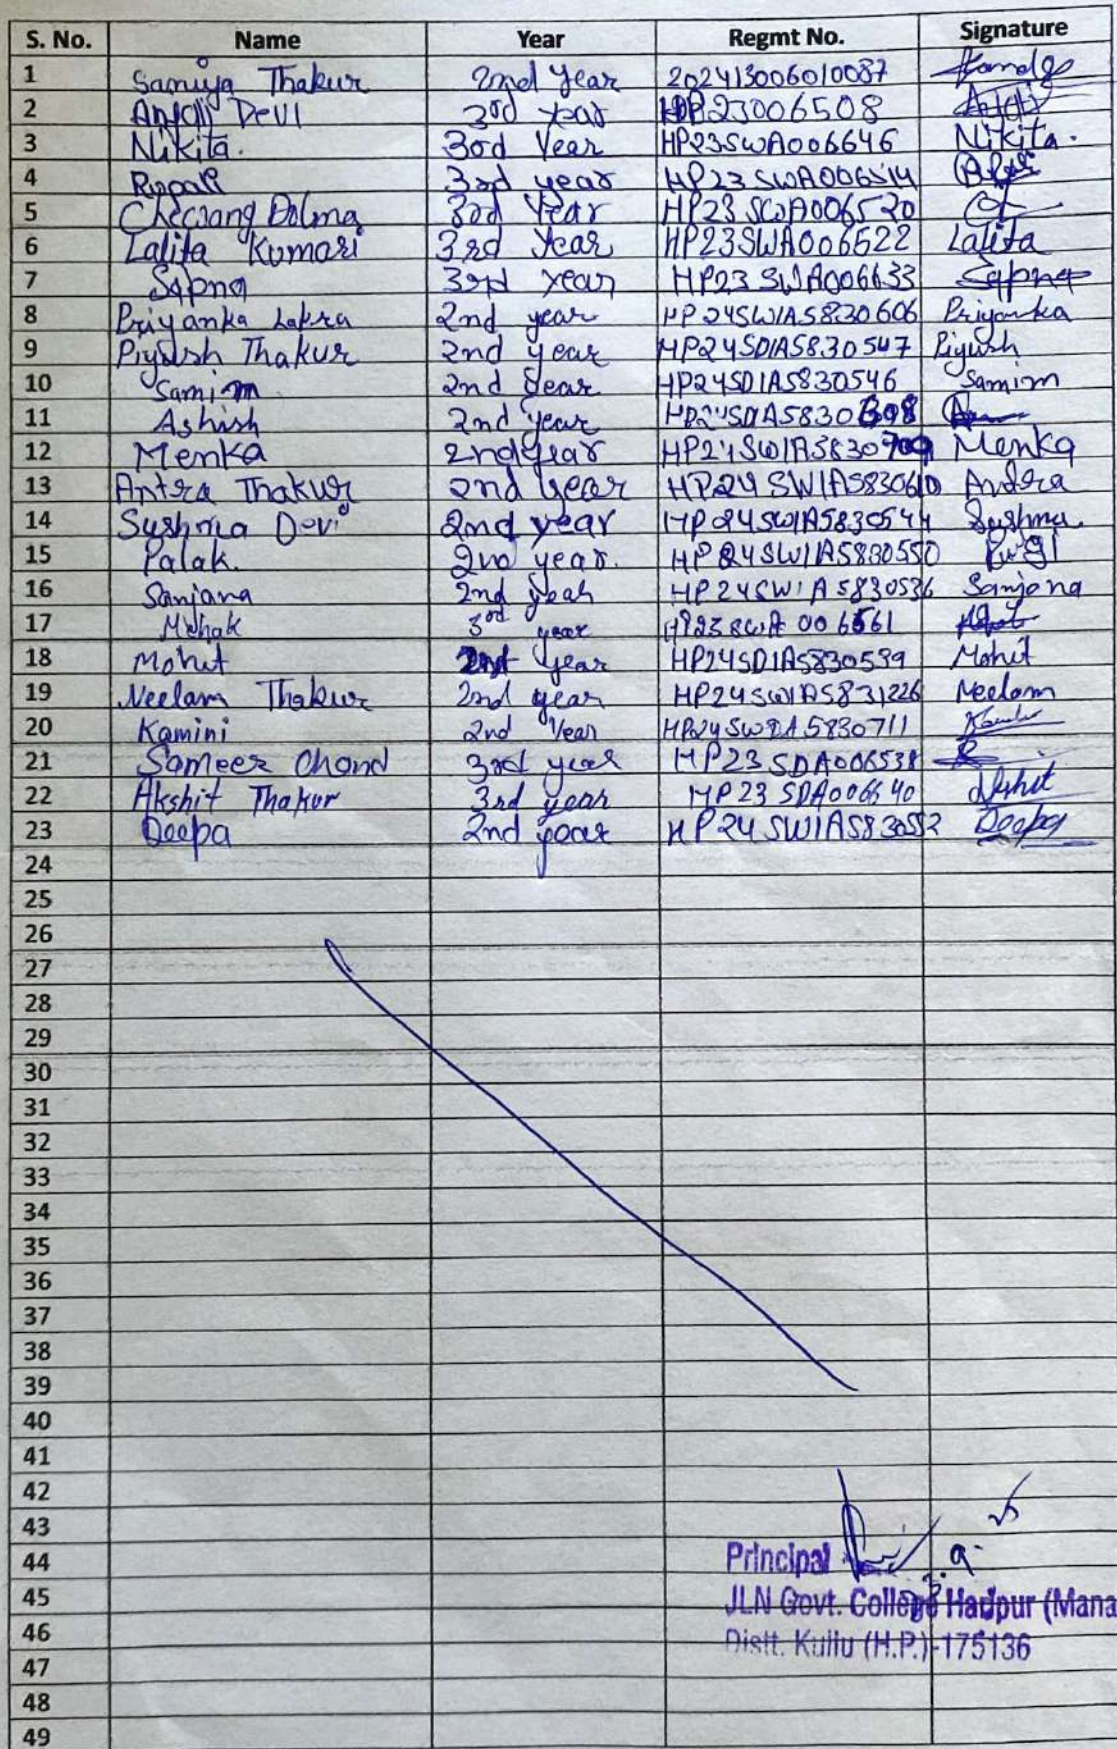 S. No. Name Year Regmt No. Signature
1 Saniya Thakur 2nd Year 202413006010087
2 Anjali Devi 3rd year HP23006508 Anjali
3 Nikita. 3rd Year HP23SWA006646 Nikita.
4 Rupali 3rd year HP23SWA006514
5 Cheezang Dolma 3rd Year HP23SWA006520
6 Lalita Kumari 3rd Year HP23SWA006522 Lalita
7 Sapna 3rd year HP23SWA006633 Sapna
8 Priyanka Lakra 2nd year HP24SWIA5830606 Priyanka
9 Piyush Thakur 2nd year HP24SDIA5830547 Piyush
10 Samim 2nd Year HP24SDIA5830546 Samim
11 Ashish 2nd year
12 Menka 2nd year HP24SWIA5830709 Menka
13 Antra Thakur 2nd year HP24SWIA5830610 Antra
14 Sushma Devi 2nd year HP24SWIA5830544 Sushma
15 Palak. 2nd year. HP24SWIA5830550
16 Sanjana 2nd year HP24SWIA5830536 Sanjana
17 Mehak 3rd year HP23SWA006561
18 Mohit 2nd Year HP24SDIA5830539 Mohit
19 Neelam Thakur 2nd year HP24SWIA5831226 Neelam
20 Kamini 2nd Year HP24SWIA5830711
21 Sameer Chand 3rd year HP23SDA006538
22 Akshit Thakur 3rd year HP23SDA006540 Akshit
23 Deepa 2nd year HP24SWIA5830552 Deepa
24
25
26
27
28
29
30
31
32
33
34
35
36
37
38
39
40
41
42
43
44 Principal
45 JLN Govt. College Haripur (Mana
46 Distt. Kullu (H.P.)-175136
47
48
49